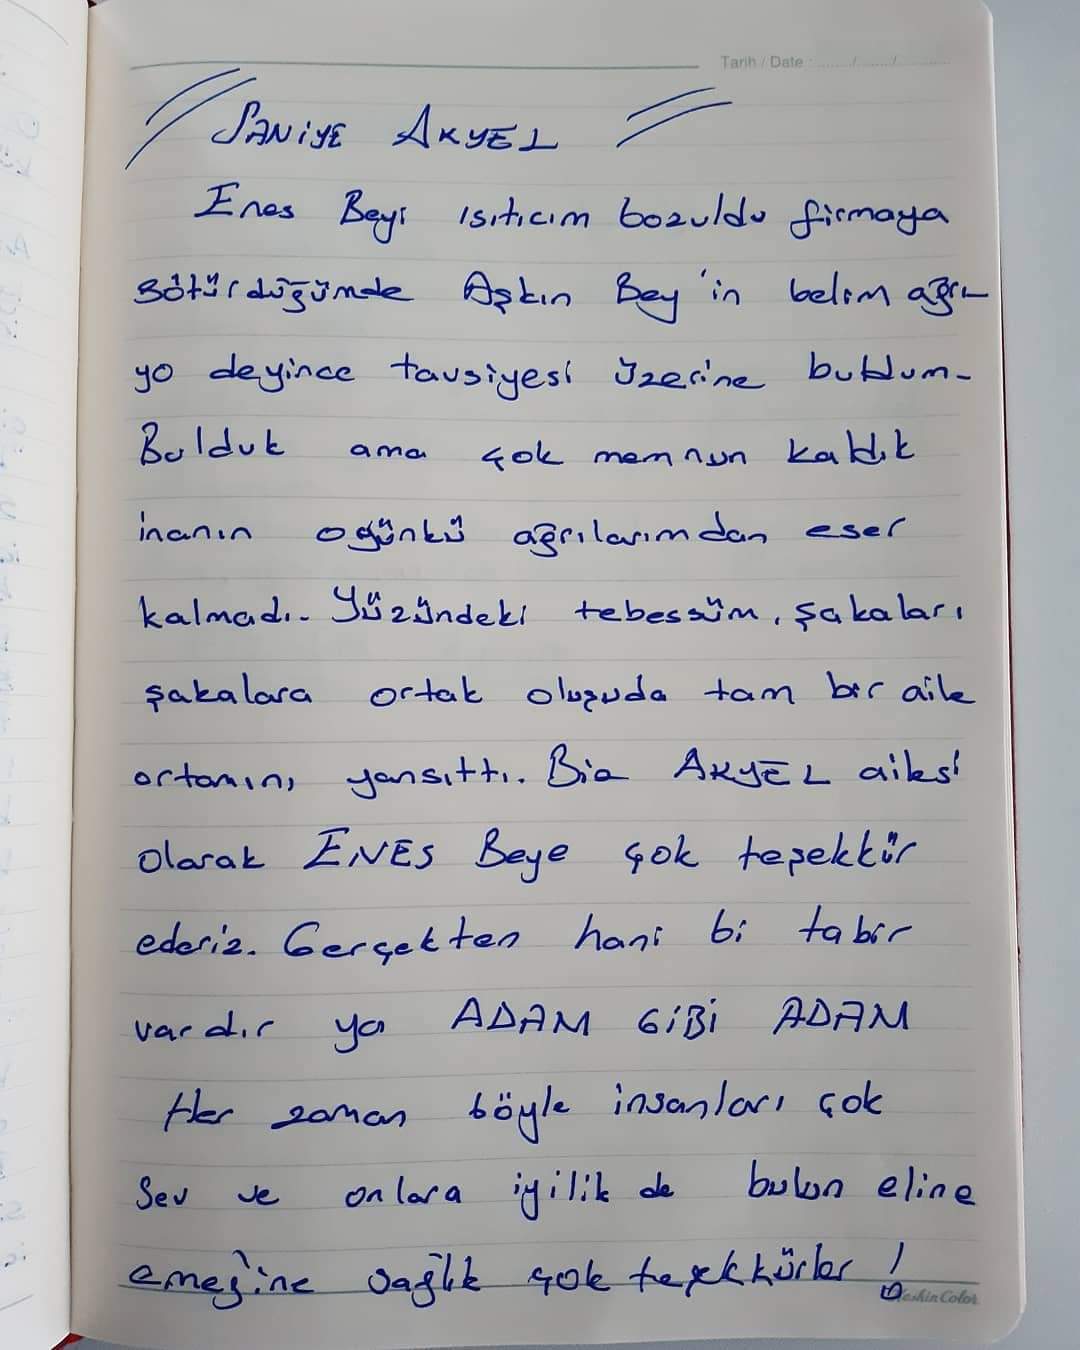 Tarih / Date ....... / ....... / .......
SANİYE AKYEL
Enes Beyi ısıtıcım bozuldu firmaya
götürdüğümde Aşkın Bey'in belim ağrı-
yo deyince tavsiyesi üzerine buldum-
Bulduk ama çok memnun kaldık
inanın ogünkü ağrılarımdan eser
kalmadı. Yüzündeki tebessüm, şakaları
şakalara ortak oluşuda tam bir aile
ortamını yansıttı. Biz AKYEL ailesi
olarak ENES Beye çok teşekkür
ederiz. Gerçekten hani bi tabir
vardır ya ADAM GİBİ ADAM
Her zaman böyle insanları çok
Sev ve onlara iyilik de bulun eline
emeğ'ine sağlık çok teşekkürler !
KeskinColor